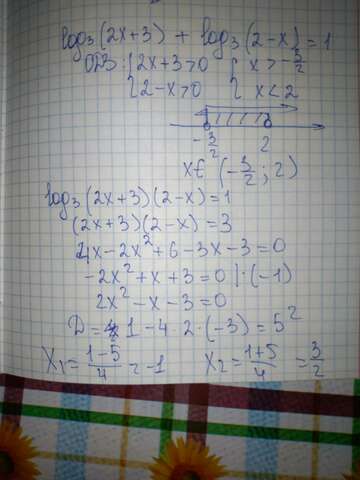 log₃(2x+3) + log₃(2-x) = 1
ОДЗ: { 2x+3>0 { x > -3/2
{ 2-x>0 { x < 2
-3/2 2
x∈ (-3/2; 2)
log₃(2x+3)(2-x) = 1
(2x+3)(2-x) = 3
4x-2x²+6-3x-3=0
-2x²+x+3=0 |·(-1)
2x²-x-3=0
D = 1-4·2·(-3) = 5²
x₁ = (1-5)/4 = -1 x₂ = (1+5)/4 = 3/2